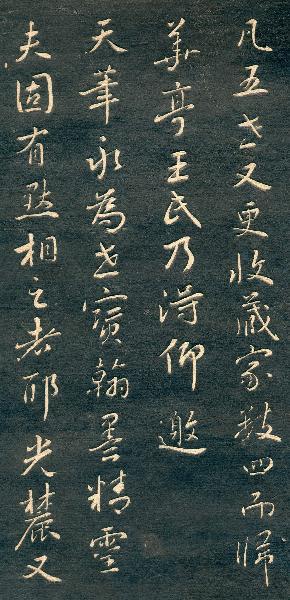 凡五世又更收藏家數四而歸
華亭王氏乃得仰邀
天筆永為世寶翰墨精靈
夫固有默相之者耶光麓又